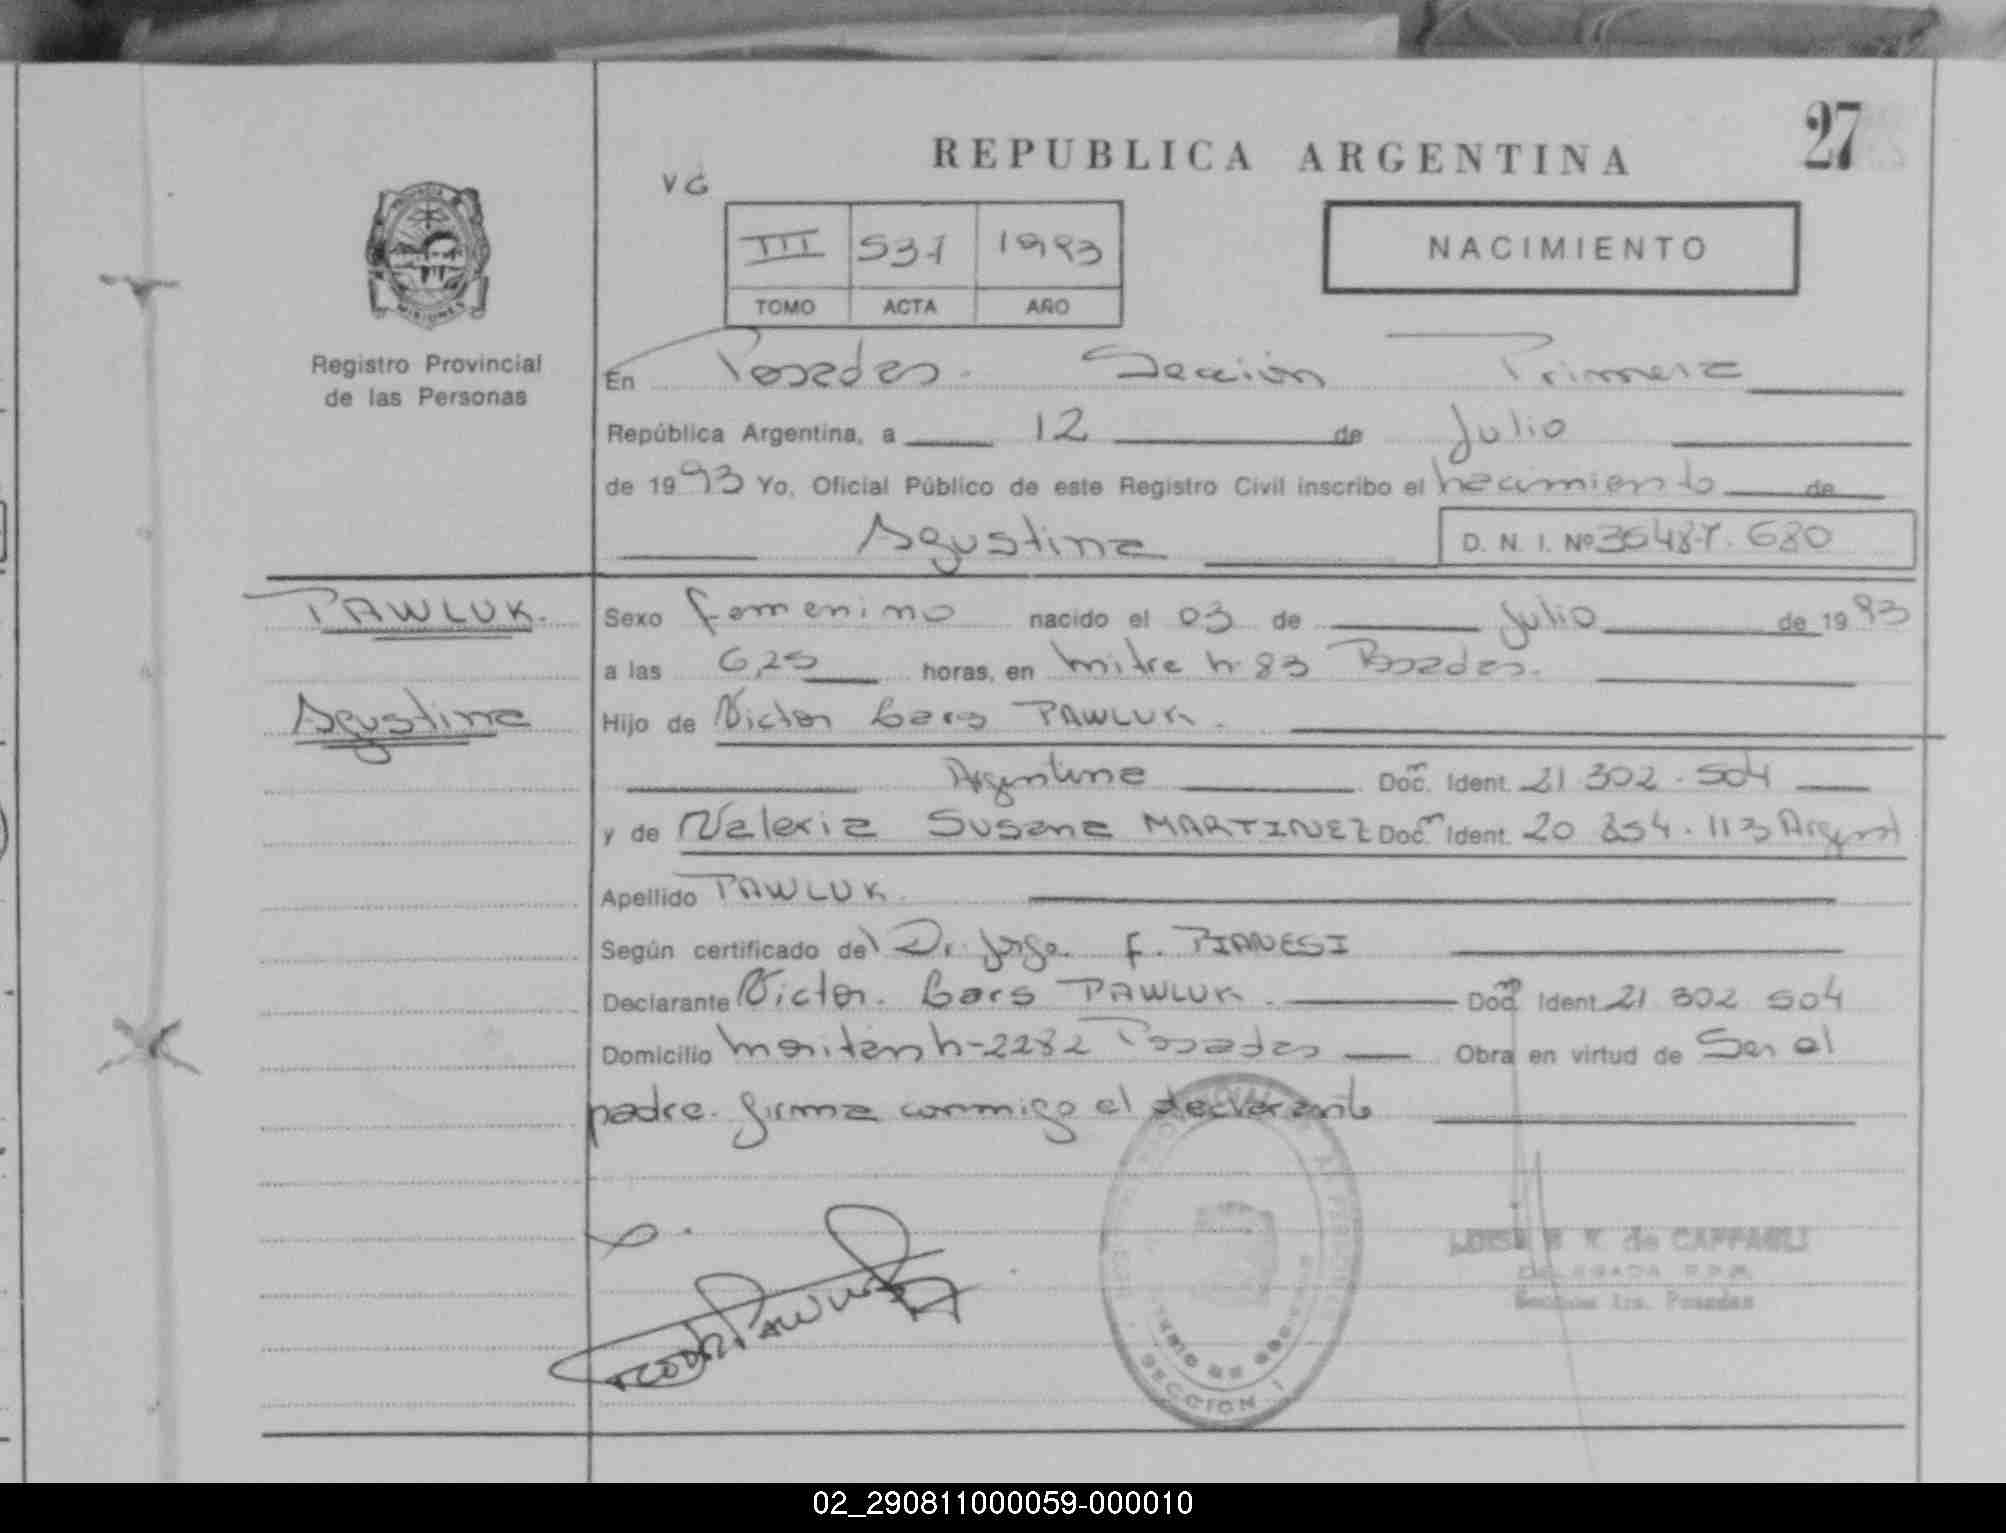 27
REPUBLICA ARGENTINA
VG
III 531 1993
NACIMIENTO
TOMO ACTA AÑO
MISIONES
Registro Provincial
de las Personas
En Posadas. Sección Primera
República Argentina, a 12 de Julio
de 1993 Yo, Oficial Público de este Registro Civil inscribo el nacimiento de
Agustina D. N. I. Nº 36487.680
PAWLUK.
Sexo femenino nacido el 03 de Julio de 1993
a las 6,25 horas, en mitre n-83 Posadas.
Agustina
Hijo de Victor PAWLUK.
Argentina Doc. Ident. 21.302.504
y de Valeria Susana MARTINEZ Doc. Ident. 20 854.113 Argent
Apellido PAWLUK.
Según certificado del Dr. Jorge F. PIANESI
Declarante Victor. PAWLUK. Doc. Ident. 21 302 504
Domicilio n-2282 Posadas Obra en virtud de Ser el
padre. firma conmigo el declarante
de CAPPAGLI
DELEGADA R.P.P.
Seccion 1ra. Posadas
SECCION 1
02_290811000059-000010